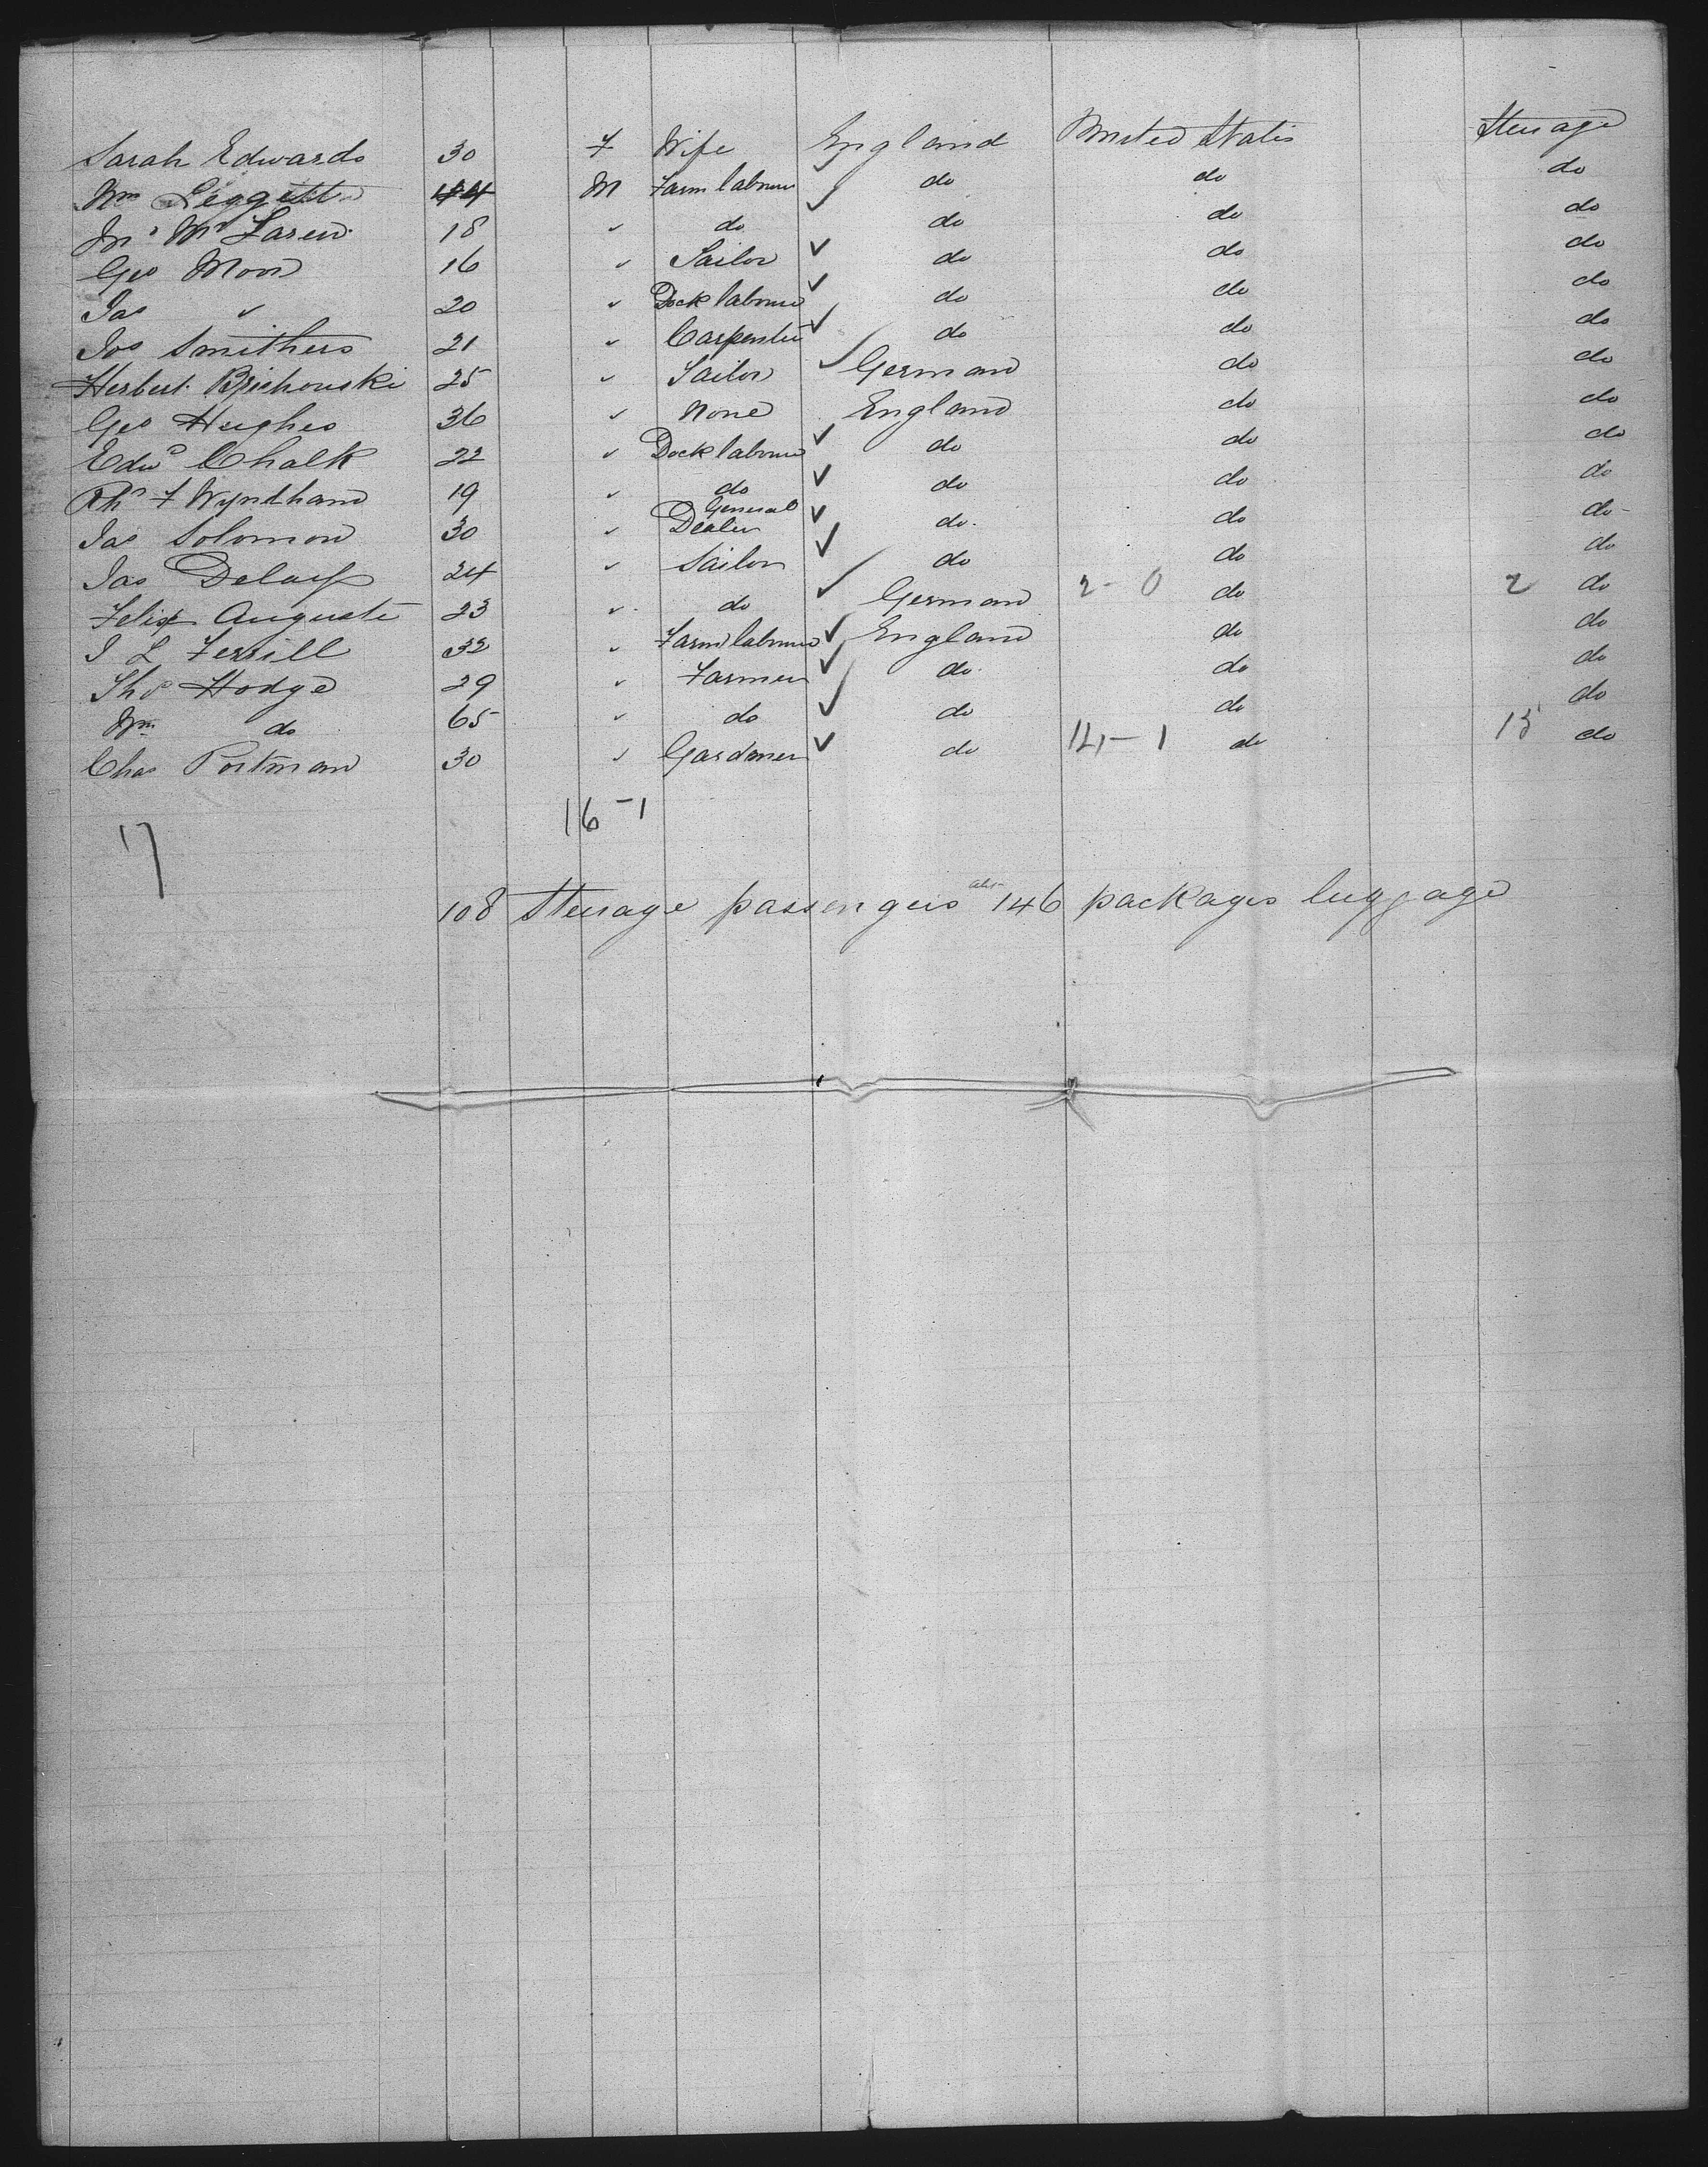 Sarah Edwards 30 F Wife England United States Steerage
Wm Leggett 44 M Farm labourer ✓ do do do
Jno Mc Laren 18 " do ✓ do do do
Geo Moon 16 " Sailor ✓ do do do
Jas " 20 " Dock labourer ✓ do do do
Jos Smithers 21 " Carpenter ✓ do do do
Herbert 25 " Sailor ✓ German do do
Geo Hughes 36 " None England do do
Edwd Chalk 22 " Dock labourer ✓ do do do
F Wyndham 19 " do ✓ do do do
Jas Solomon 30 " General Dealer ✓ do do do
Jas 24 " Sailor ✓ do do do
Felix Auguste 23 " do ✓ German 2-0 do 2 do
J L Ferrill 32 " Farm labourer ✓ England do do
Thos Hodge 29 " Farmer ✓ do do do
Wm do 65 " do ✓ do do do
Chas Portman 30 " Gardener ✓ do 14-1 do 15 do
16-1
17
108 Steerage passengers 146 packages luggage